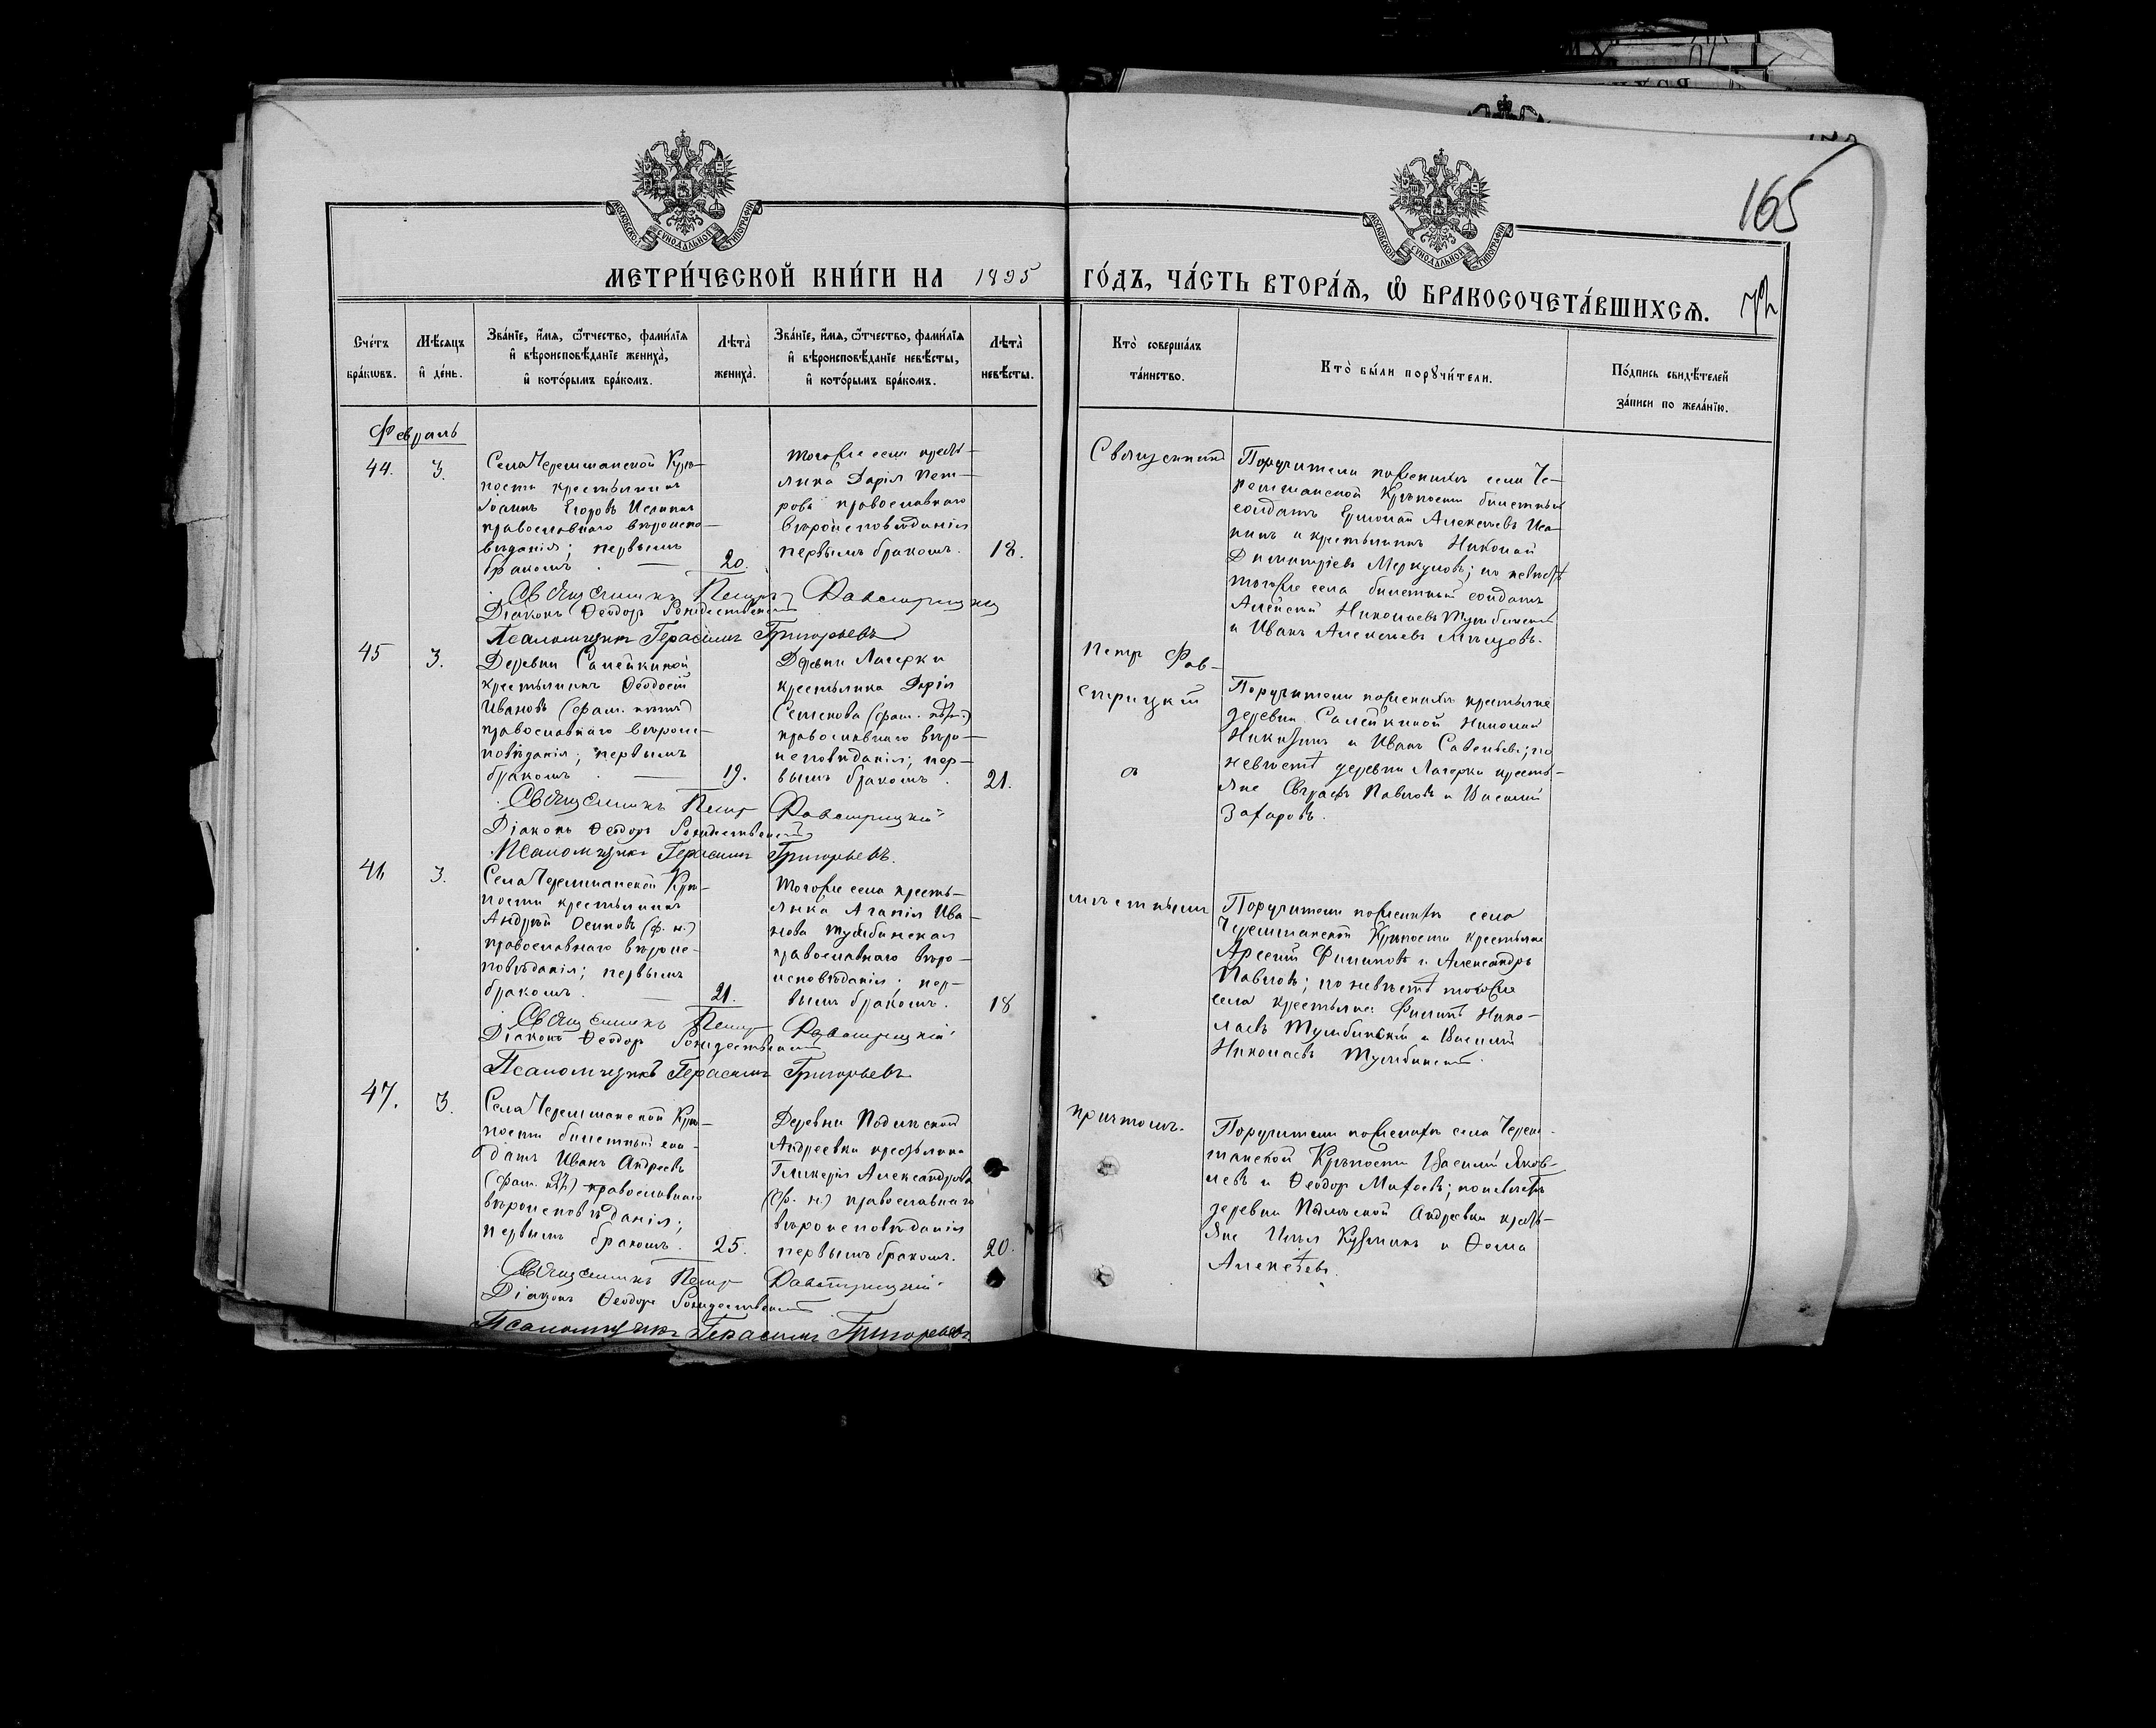 165
МОСКОВСКОЙ СУНОДАЛЬНОЙ ТИПОГРАФІИ
МОСКОВСКОЙ СУНОДАЛЬНОЙ ТИПОГРАФІИ
МЕТРИ́ЧЕСКОЙ КНИ́ГИ НА 1895
ГО́ДЪ, ЧА́СТЬ ВТОРА́Ѧ, Ѡ҆ БРАКОСОЧЕТА́ВШИХСѦ.
Сче́тъ
бра́кѡвъ.
Мѣ́сяцъ
и҆ де́нь.
Зва́нїе, и҆́мя, ѻ҆́тчество, фами́лїя
и҆ вѣроисповѣ́данїе жениха̀,
и҆ кото́рымъ бра́комъ.
Лѣта̀
жениха̀.
Зва́нїе, и҆́мя, ѻ҆́тчество, фами́лїя
и҆ вѣроисповѣ́данїе невѣ́сты,
и҆ кото́рымъ бра́комъ.
Лѣта̀
невѣ́сты.
Кто̀ соверша́лъ
та́инство.
Кто̀ бы́ли порꙋчи́тели.
По́дпись свидѣ́телей
за́писи по жела́нїю.
Февраль
44.
3.
Села Черемшанской Крѣ-
пости крестьянинъ
Іоаннъ Егоровъ Исаинъ
православнаго вѣроиспо-
вѣданія; первымъ
бракомъ. —
20.
тогоже села кресть-
янка Дарія Пет-
рова православнаго
вѣроисповѣданія
первымъ бракомъ.
18.
Священникъ
Поручители по женихѣ села Че-
ремшанской Крѣпости билетный
солдатъ Ермолай Алексѣевъ Иса-
инъ и крестьянинъ Николай
Димитріевъ Меркуловъ; по невѣстѣ
тогоже села билетный солдатъ
Алексѣй Николаевъ Тумбинскій
и Иванъ Алексѣевъ
Священникъ Петръ Фавстрицкій
Діаконъ Ѳеодоръ Рождественскій
Псаломщикъ Герасимъ Григорьевъ
45
3.
Деревни Салейкиной
крестьянинъ Ѳеодосій
Ивановъ (фам. нѣтъ)
православнаго вѣроис-
повѣданія; первымъ
бракомъ. —
19.
Деревни Лагерки
крестьянка Дарія
Семенова (фам. нѣт.)
православнаго вѣро-
исповѣданія; пер-
вымъ бракомъ.
21.
Петр Фав-
стрицкій
съ
Поручители по женихѣ крестьяне
деревни Салейкиной Николай
Никитинъ и Иванъ Савельевъ; по
невѣстѣ деревни Лагерки кресть-
яне Павловъ и Василій
Захаровъ.
Священникъ Петръ Фавстрицкій
Діаконъ Ѳеодоръ Рождественскій
Псаломщикъ Герасимъ Григорьевъ.
46
3.
Села Черемшанской Крѣ-
пости крестьянинъ
Андрей Осиповъ (ф. н.)
православнаго вѣроис-
повѣданія; первымъ
бракомъ. —
21.
тогоже села кресть-
янка Агапія Ива-
нова Тумбинская
православнаго вѣро-
исповѣданія; пер-
вымъ бракомъ.
18
мѣстнымъ
Поручители по женихѣ села
Черемшанской Крѣпости крестьяне
Арсеній Филиповъ и Александръ
Павловъ; по невѣстѣ тогоже
села крестьяне Филипъ Нико-
лаевъ Тумбинскій и Василій
Николаевъ Тумбинскій.
Священникъ Петръ Фавстрицкій
Діаконъ Ѳеодоръ Рождественскій
Псаломщикъ Герасимъ Григорьевъ
47.
3.
Села Черемшанской Крѣ-
пости билетный сол-
датъ Иванъ Андреевъ
(фам. нѣт.) православнаго
вѣроисповѣданія;
первымъ бракомъ.
25.
Деревни Подлѣсной
Андреевки крестьянка
Гликерія Александрова
(ф. н.) православнаго
вѣроисповѣданія
первымъ бракомъ.
20.
причтомъ.
Поручители по женихѣ села Черем-
шанской Крѣпости Василій Яков-
левъ и Ѳеодоръ; по невѣстѣ
деревни Подлѣсной Андреевки кресть-
яне Илья Кузминъ и Ѳома
Алексѣевъ.
Священникъ Петръ Фавстрицкій
Діаконъ Ѳеодоръ Рождественскій
Псаломщикъ Герасимъ Григорьевъ.